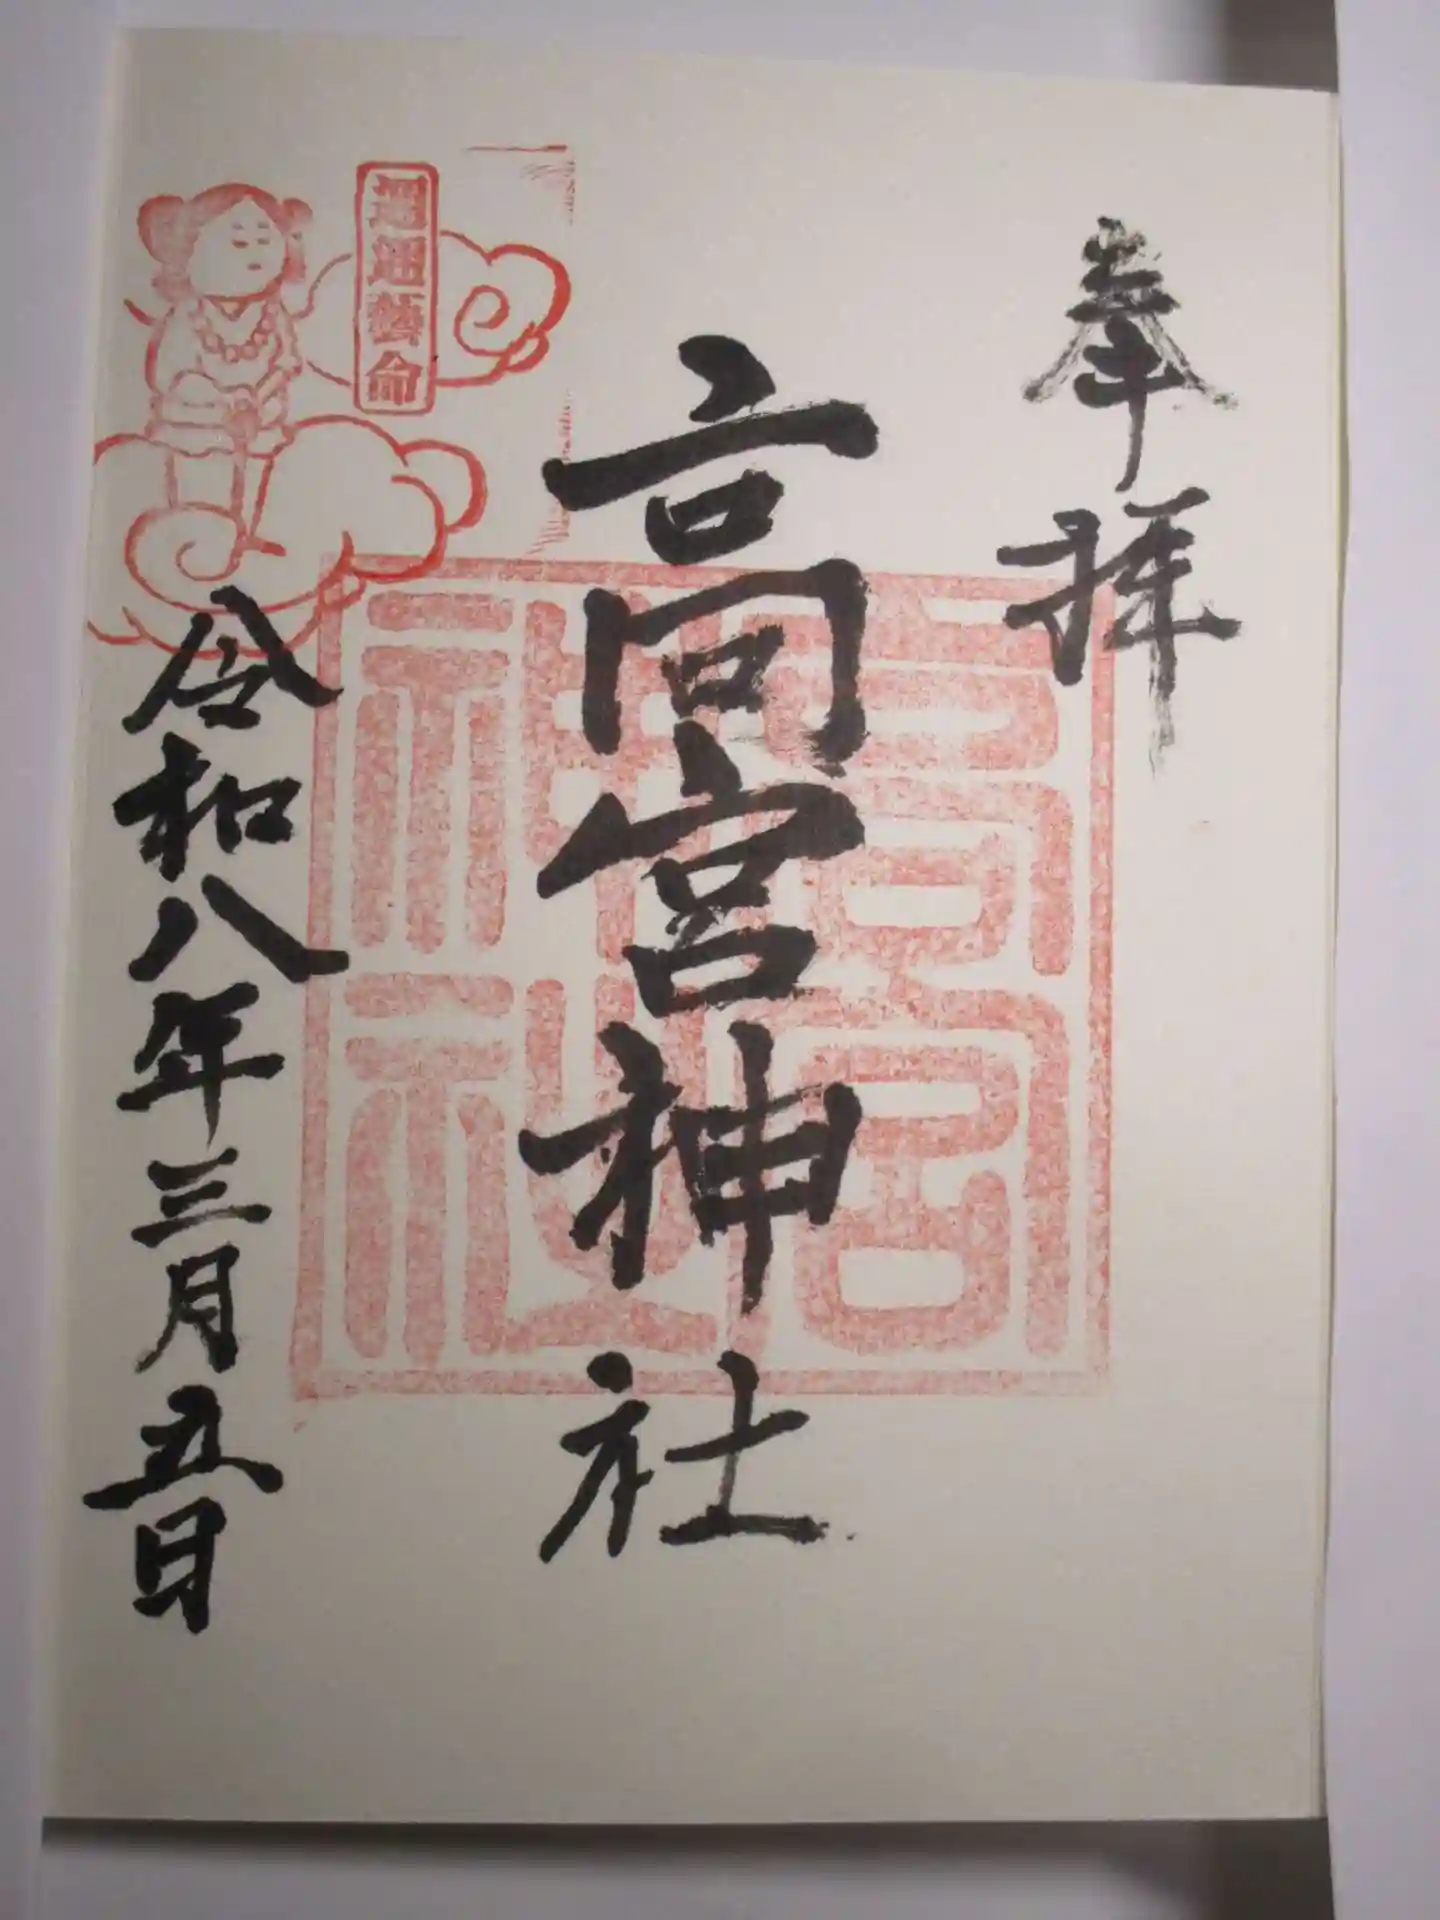 奉拝
高宮神社
高宮神社
邇邇藝命
令和八年三月五日